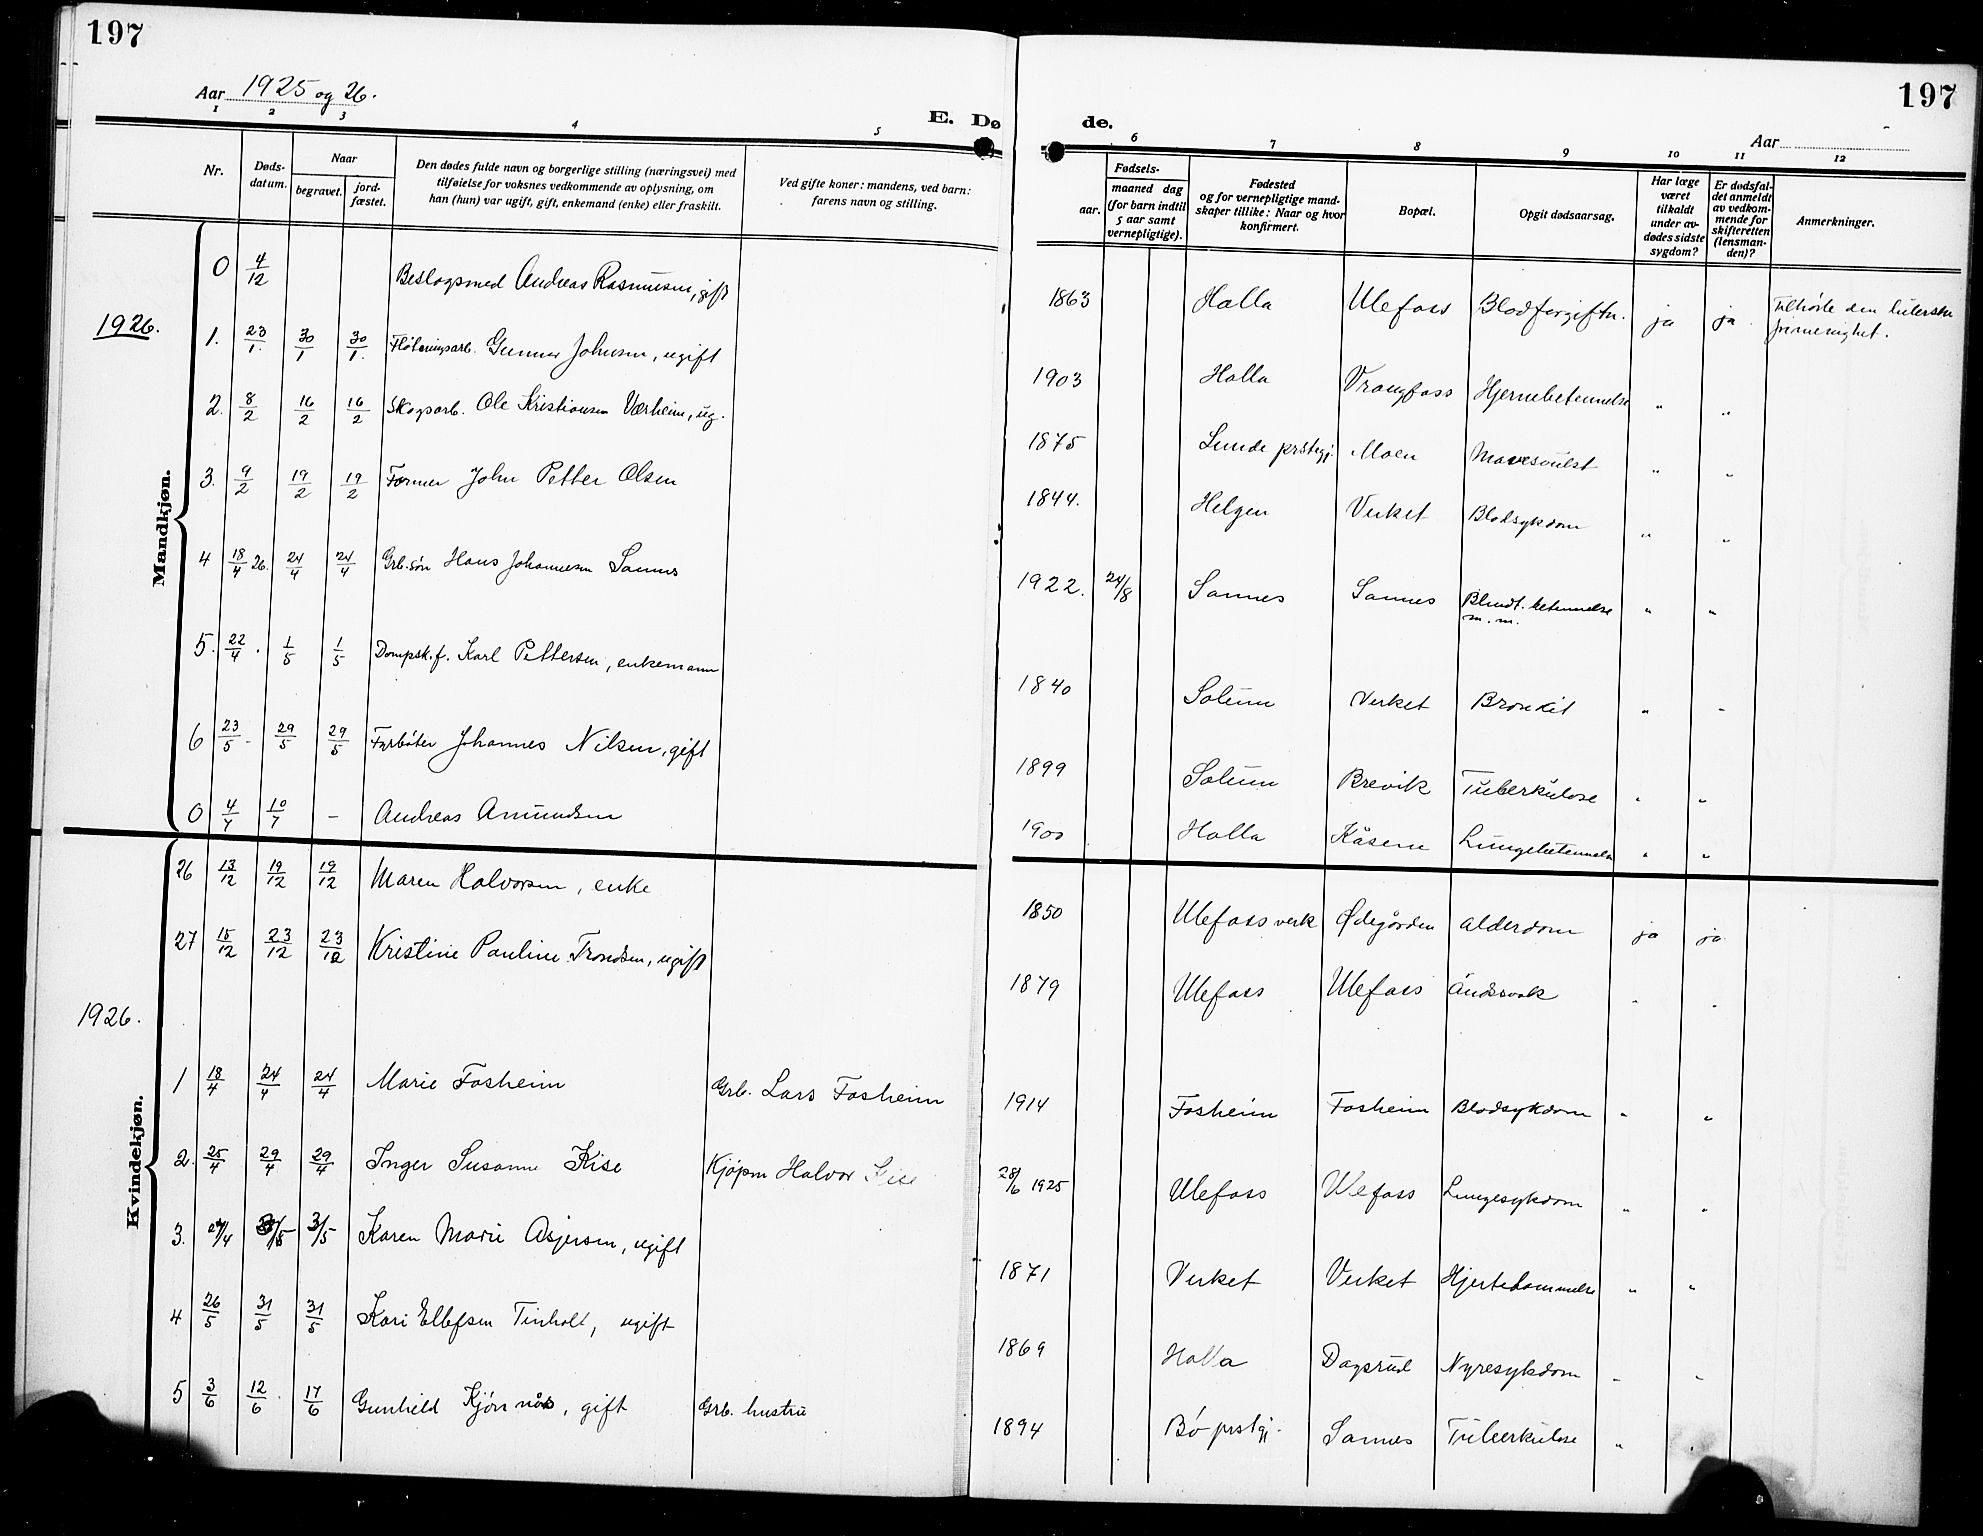 197
Aar 1925 og 26.
E. Dø
1 2 3 4 5
Nr.
Døds-
datum.
Naar
begravet.
jord-
fæstet.
Den dødes fulde navn og borgerlige stilling (næringsvei) med
tilføielse for voksnes vedkommende av oplysning, om
han (hun) var ugift, gift, enkemand (enke) eller fraskilt.
Ved gifte koner: mandens, ved barn:
farens navn og stilling.
Mandkjøn.
0 4/12 Beslagsmed Andreas Rasmussen, gift
1926.
1. 23/1. 30/1 30/1. Fløtningsarb. Gunnar Johnsen, ugift
2. 8/2 16/2 16/2 Skogsarb. Ole Kristiansen Værheim, ug.
3. 9/2 19/2 19/2 Former John Petter Olsen
4 18/4 26. 24/4 24/4 Grb. søn Hans Johannesen Sannes
5. 22/4. 1/5 1/5 Dampsk.f. Karl Pettersen, enkemann
6 23/5 - 29/5 29/5 Fyrbøter Johannes Nilsen, gift
0 4/7 10/7 - Andreas Amundsen
Kvindekjøn.
26 13/12 19/12 19/12 Maren Halvorsen, enke
27 15/12 23/12 23/12 Kristine Pauline Trondsen, ugift
1926.
1 18/4 24/4 24/4 Marie Fosheim Grb. Lars Fosheim
2. 25/4 29/4 29/4 Inger Susanne Kise Kjøpm Halvor Kise
3. 27/4 3/5 3/5 Karen Marie Asjersen, ugift
4 26/5 31/5 31/5 Kari Ellefsen Tinholt, ugift
5 3/6 12/6. 17/6 Gunhild Kjønnås, gift Grb. hustru
197
de.
Aar
6 7 8 9 10 11 12
Fødsels-
aar.
maaned dag
(for barn indtil
5 aar samt
vernepligtige).
Fødested
og for vernepligtige mand-
skaper tillike: Naar og hvor
konfirmert.
Bopæl.
Opgit dødsaarsag.
Har læge
været
tilkaldt
under av-
dødes sidste
sygdom?
Er dødsfal-
det anmeldt
av vedkom-
mende for
skifteretten
(lensman-
den)?
Anmerkninger.
1863 Holla Ulefoss Blodforgiftn. ja ja. Tilhørte den luterske
frimenighet.
1903 Holla Vrangfoss Hjernebetennelse " "
1875 Lunde prstegj. Moen Mavesvulst " "
1844. Helgen Verket Blodsykdom " "
1922. 24/8 Sannes Sannes Blindt. betennelse " "
m. m.
1840 Solum Verket Bronkit " "
1899 Solum Brevik Tuberkulose " "
1900 Holla Kåsene Lungebetennelse " "
1850 Ulefoss verk Ødegården Alderdom ja ja
1879 Ulefoss Ulefoss Åndsvak " "
1914 Fosheim Fosheim Blodsykdom " "
28/6 1925 Ulefoss Ulefoss Lungesykdom " "
1871 Verket Verket Hjertelammelse " "
1869 Holla Dagsrud Nyresykdom " "
1894 Bø prstgj. Sannes Tuberkulose " "